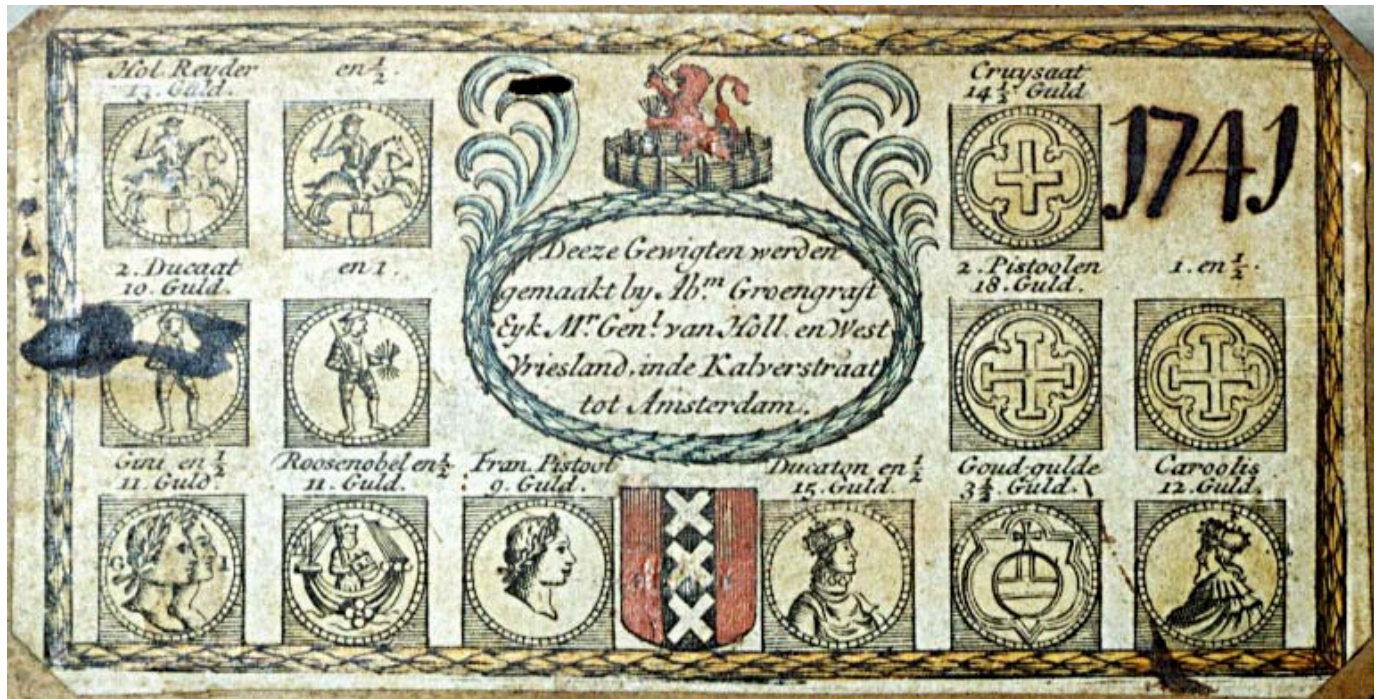 Hol. Reyder
13. Guld.
en 1/2.
Cruysaat
14 1/2 Guld
1741
2. Ducaat
10. Guld.
en 1.
Deeze Gewigten werden
gemaakt by Ab.m Groengraft
Eyk Mr. Gen.l van Holl. en West
Vriesland, inde Kalverstraat
tot Amsterdam.
2. Pistoolen
18. Guld.
1. en 1/2.
Gini en 1/2
11. Guld
Roosenobel en 1/2
11. Guld.
Fran. Pistool
9. Guld.
Ducaton en 1/2
15. Guld.
Goud-gulde
3 1/2. Guld.
Caroolis
12. Guld.
G I